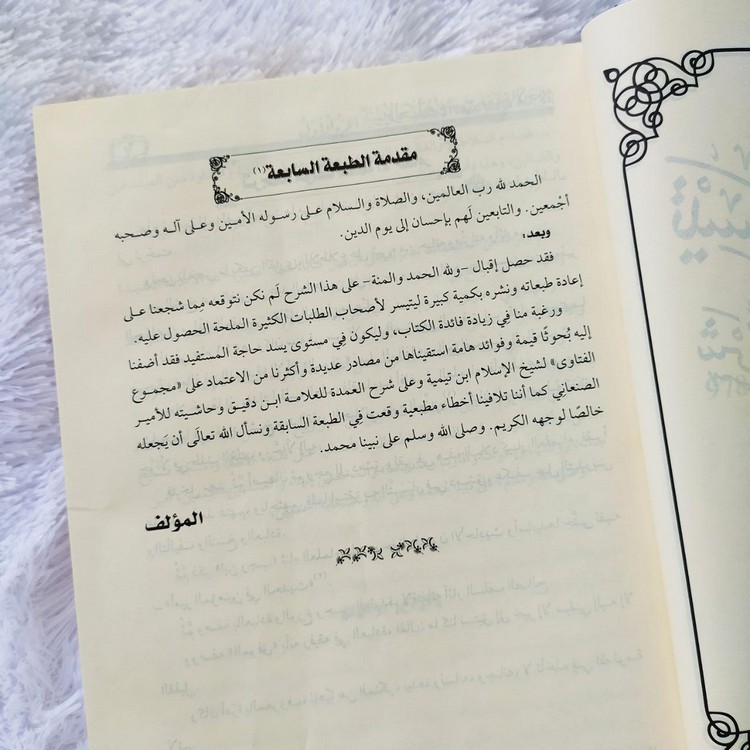 مقدمة الطبعة السابعة (١)
الحمد لله رب العالمين، والصلاة والسلام على رسوله الأمين وعلى آله وصحبه
أجْمعين. والتابعين لَهم بإحسان إلى يوم الدين.
وبعد،
فقد حصل إقبال -ولله الحمد والمنة- على هذا الشرح لَم نكن نتوقعه مِما شجعنا على
إعادة طبعاته ونشره بكمية كبيرة ليتيسر لأصحاب الطلبات الكثيرة الملحة الحصول عليه.
ورغبة منا فِي زيادة فائدة الكتاب، وليكون فِي مستوى يسد حاجة المستفيد فقد أضفنا
إليه بُحوثًا قيمة وفوائد هامة استقيناها من مصادر عديدة وأكثرنا من الاعتماد على «مجموع
الفتاوى» لشيخ الإسلام ابن تيمية وعلى شرح العمدة للعلامة ابن دقيق وحاشيته للأمير
الصنعاني كما أننا تلافينا أخطاء مطبعية وقعت فِي الطبعة السابقة ونسأل الله تعالَى أن يَجعله
خالصًا لوجهه الكريم. وصلى الله وسلم على نبينا محمد.
المؤلف